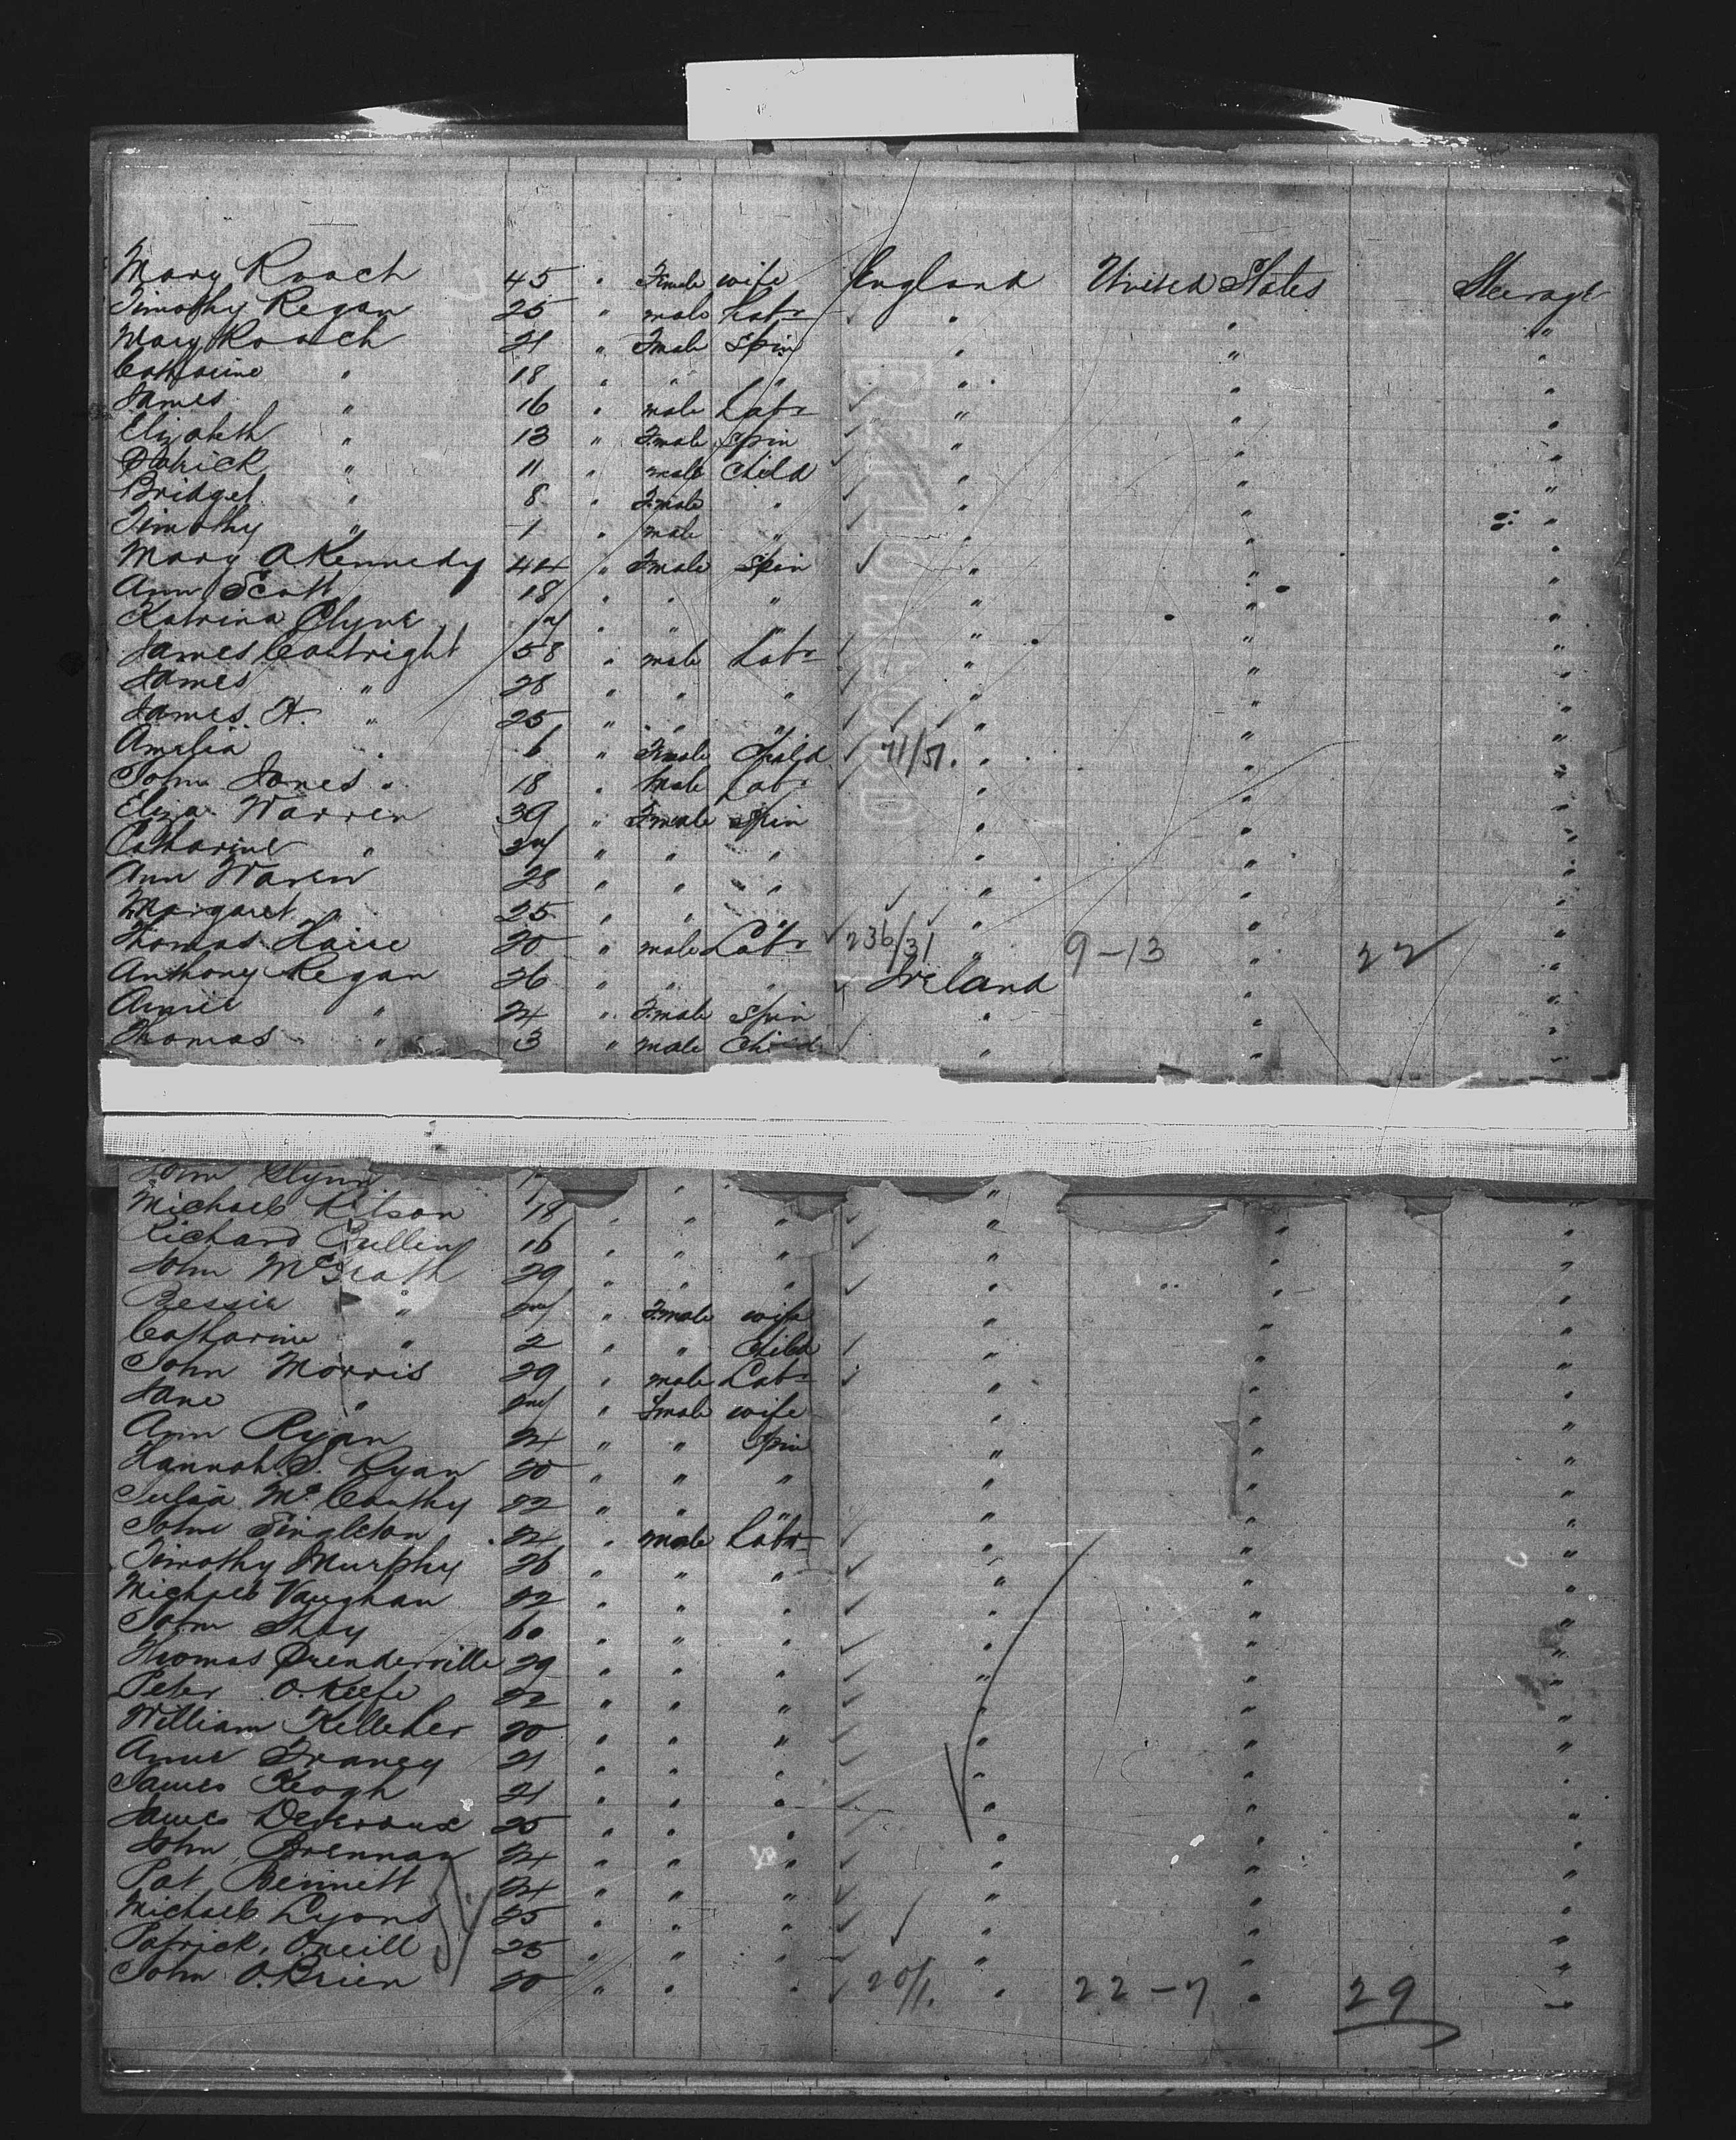 Mary Roach 45 " Female wife England United States Steerage
Timothy Regan 25 " male Labr " " "
Mary Roach 21 " Female Spin " " "
Catharine " 18 " " " " " "
James " 16 " male Labr " " "
Elizabeth " 13 " Female Spin " " "
Patrick " 11 " male Child " " "
Bridget " 8 " Female " " " "
Timothy " 1 " male " " " "
Mary A Kennedy 44 " Female Spin " " "
Ann Scott 18 " " " " " "
Katrina Clyne " " " " " "
James Coutright 58 " male Labr " " "
James " 28 " " " " " "
James H. " 25 " " " " " "
Amelia " 6 " Female Child 71/51. " " "
John Jones 18 " Male Labr " " "
Eliza Warren 39 " Female Spin " " "
Catharine " " " " " " "
Ann Waren 28 " " " " " "
Margaret " 25 " " " " " "
Thomas 20 " male Labr 236/31 " 9-13 " 22 "
Anthony Regan 26 " " " Ireland " "
Annie " 24 " Female Spin " " "
Thomas " 3 " male Child " " "
John Glynn " " " "
Michael Kitson 18 " " " " " "
Richard Bullen 16 " " " " " "
John McGrath 29 " " " " " "
Bessie " " Female wife " " "
Catharine " 2 " " Child " " "
John Morris 29 " male Labr " " "
Jane " " Female wife " " "
Ann Ryan 24 " " Spin " " "
Hannah S. Ryan 20 " " " " " "
Julia McCarthy 22 " " " " " "
John Singleton 24 " male Labr " " "
Timothy Murphy 26 " " " " " "
Michael Vaughan 22 " " " " " "
John Shay 60 " " " " " "
Thomas Prenderville 29 " " " " " "
Peter O.Keefe 22 " " " " " "
William Kelleher 20 " " " " " "
Annie Franey 21 " " " " " "
James Keogh 21 " " " " " "
James Devereaux 25 " " " " " "
John Brennan 24 " " " " " "
Pat Bennett 24 " " " " " "
Michael Lyons 25 " " " " " "
Patrick O.neill 25 " " " " " "
John O.Brien 20 " " " 20/1. " 22-7 " 29 "